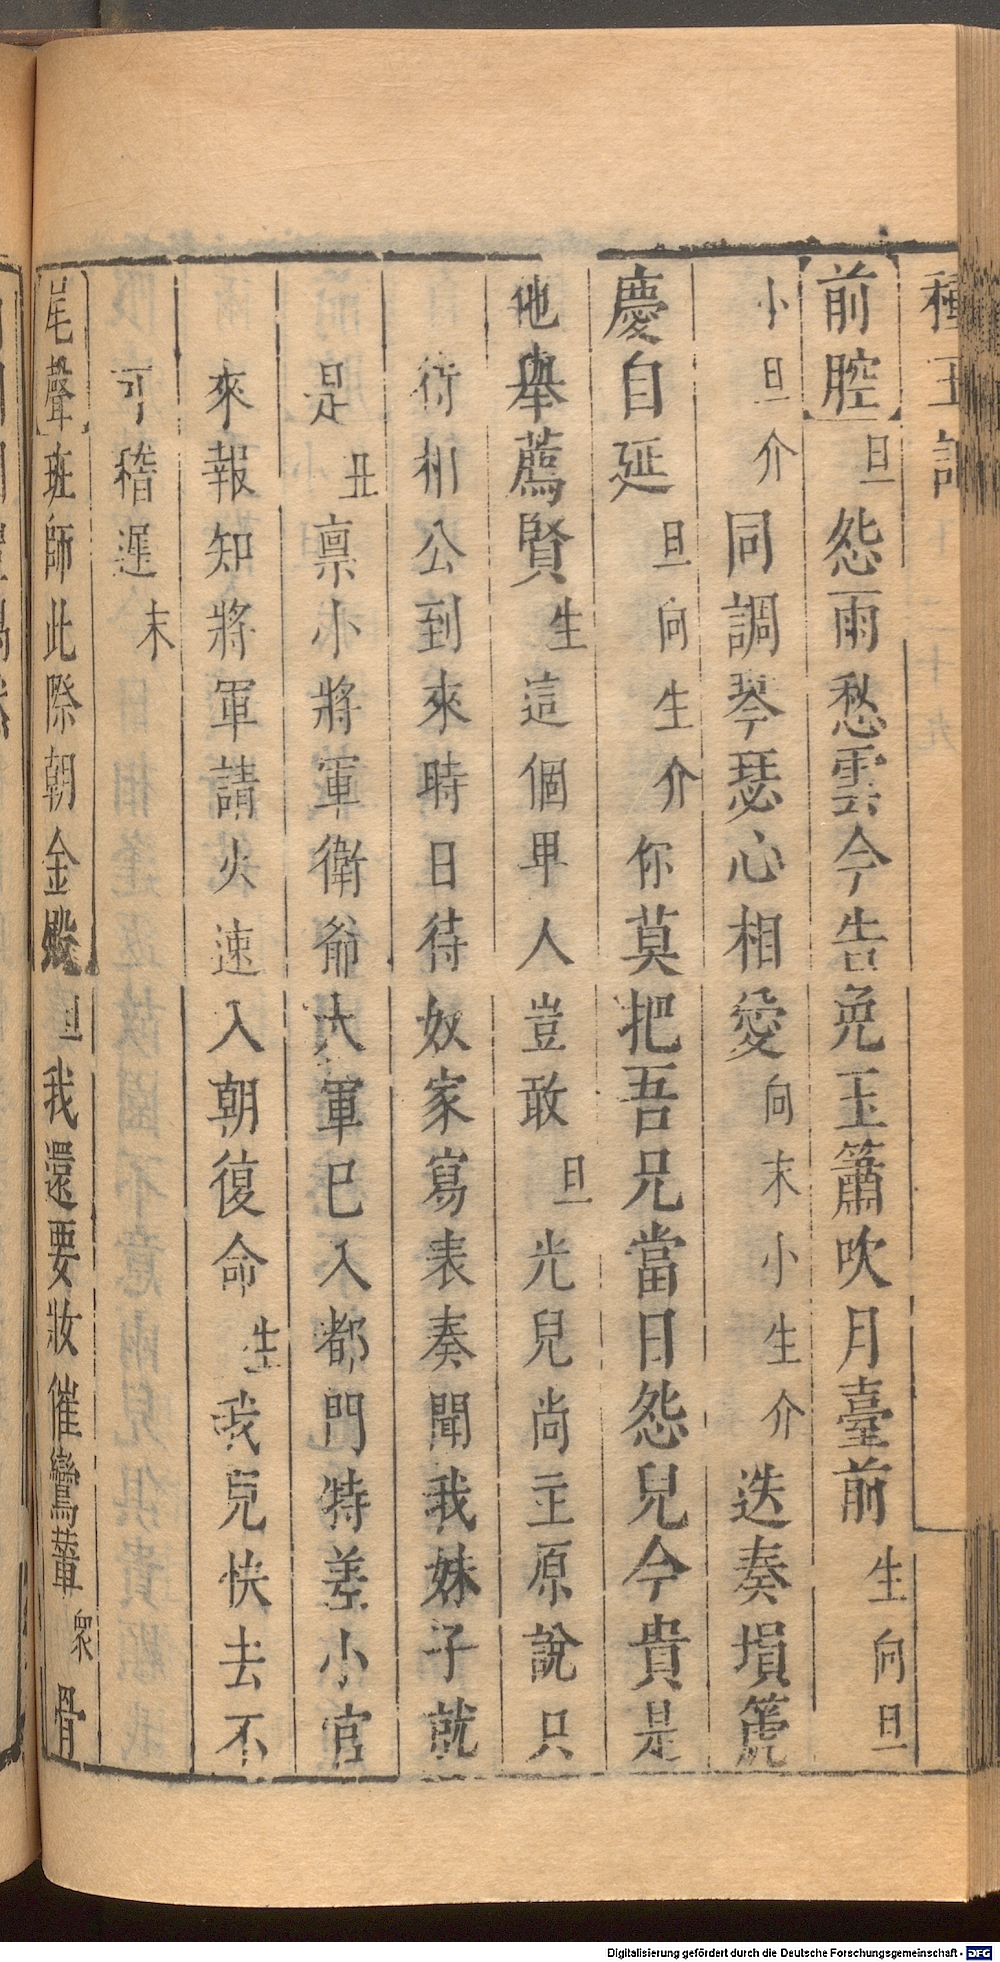 種玉記
【前腔】旦怨雨愁雲今告免玉簫吹月臺前生向旦
小旦介同調琴瑟心相愛向末小生介迭奏塤篪
慶自延旦向生介你莫把吾兄當日怨兒今貴是
他舉薦賢生這個畢人豈敢旦光兒尚主原說只
待相公到來時日待奴家寫表奏聞我妹子就
是丑稟小將軍衛爺大軍已入都門特差小官
來報知將軍請火速入朝復命生我兒快去不
可稽遲末
【尾聲】班師此際朝金殿旦我還要妝催鸞輦衆骨
Digitalisierung gefördert durch die Deutsche Forschungsgemeinschaft - DFG